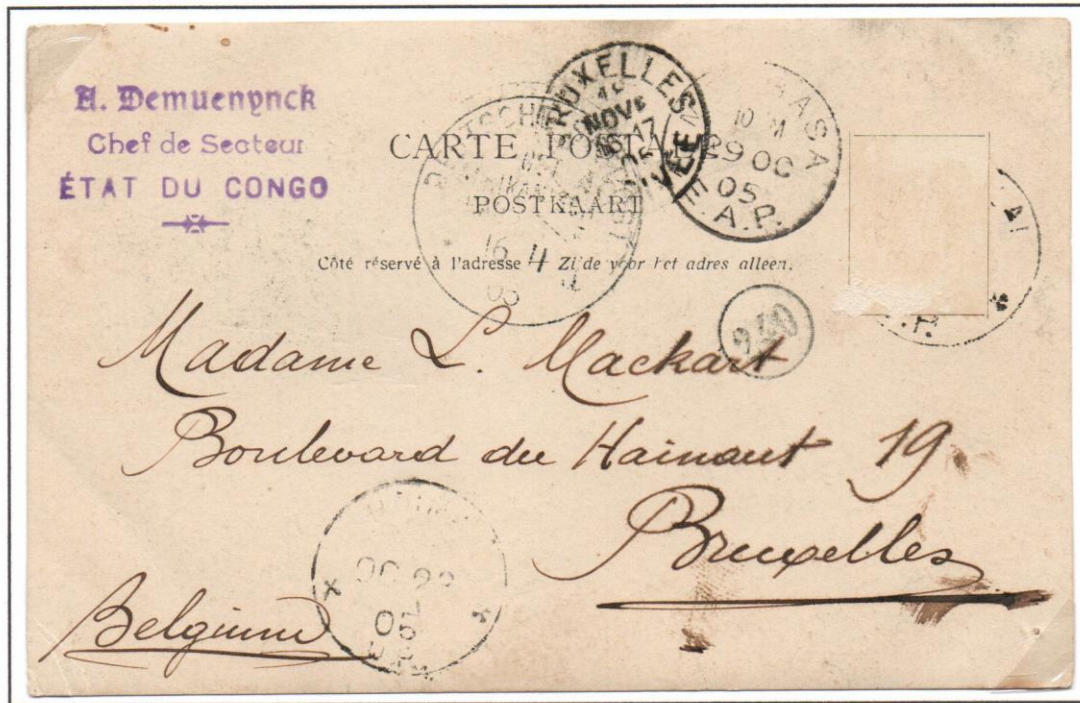 A. Demuenynck
Chef de Secteur
ÉTAT DU CONGO
CARTE POSTALE
POSTKAART
Côté réservé à l'adresse Zijde voor het adres alleen.
BRUXELLES
NOVE
29 OC
05
E.A.P.
16 4
940
Madame L. Mackart
Boulevard du Hainaut 19.
Bruxelles
Belgium
OC 22
05